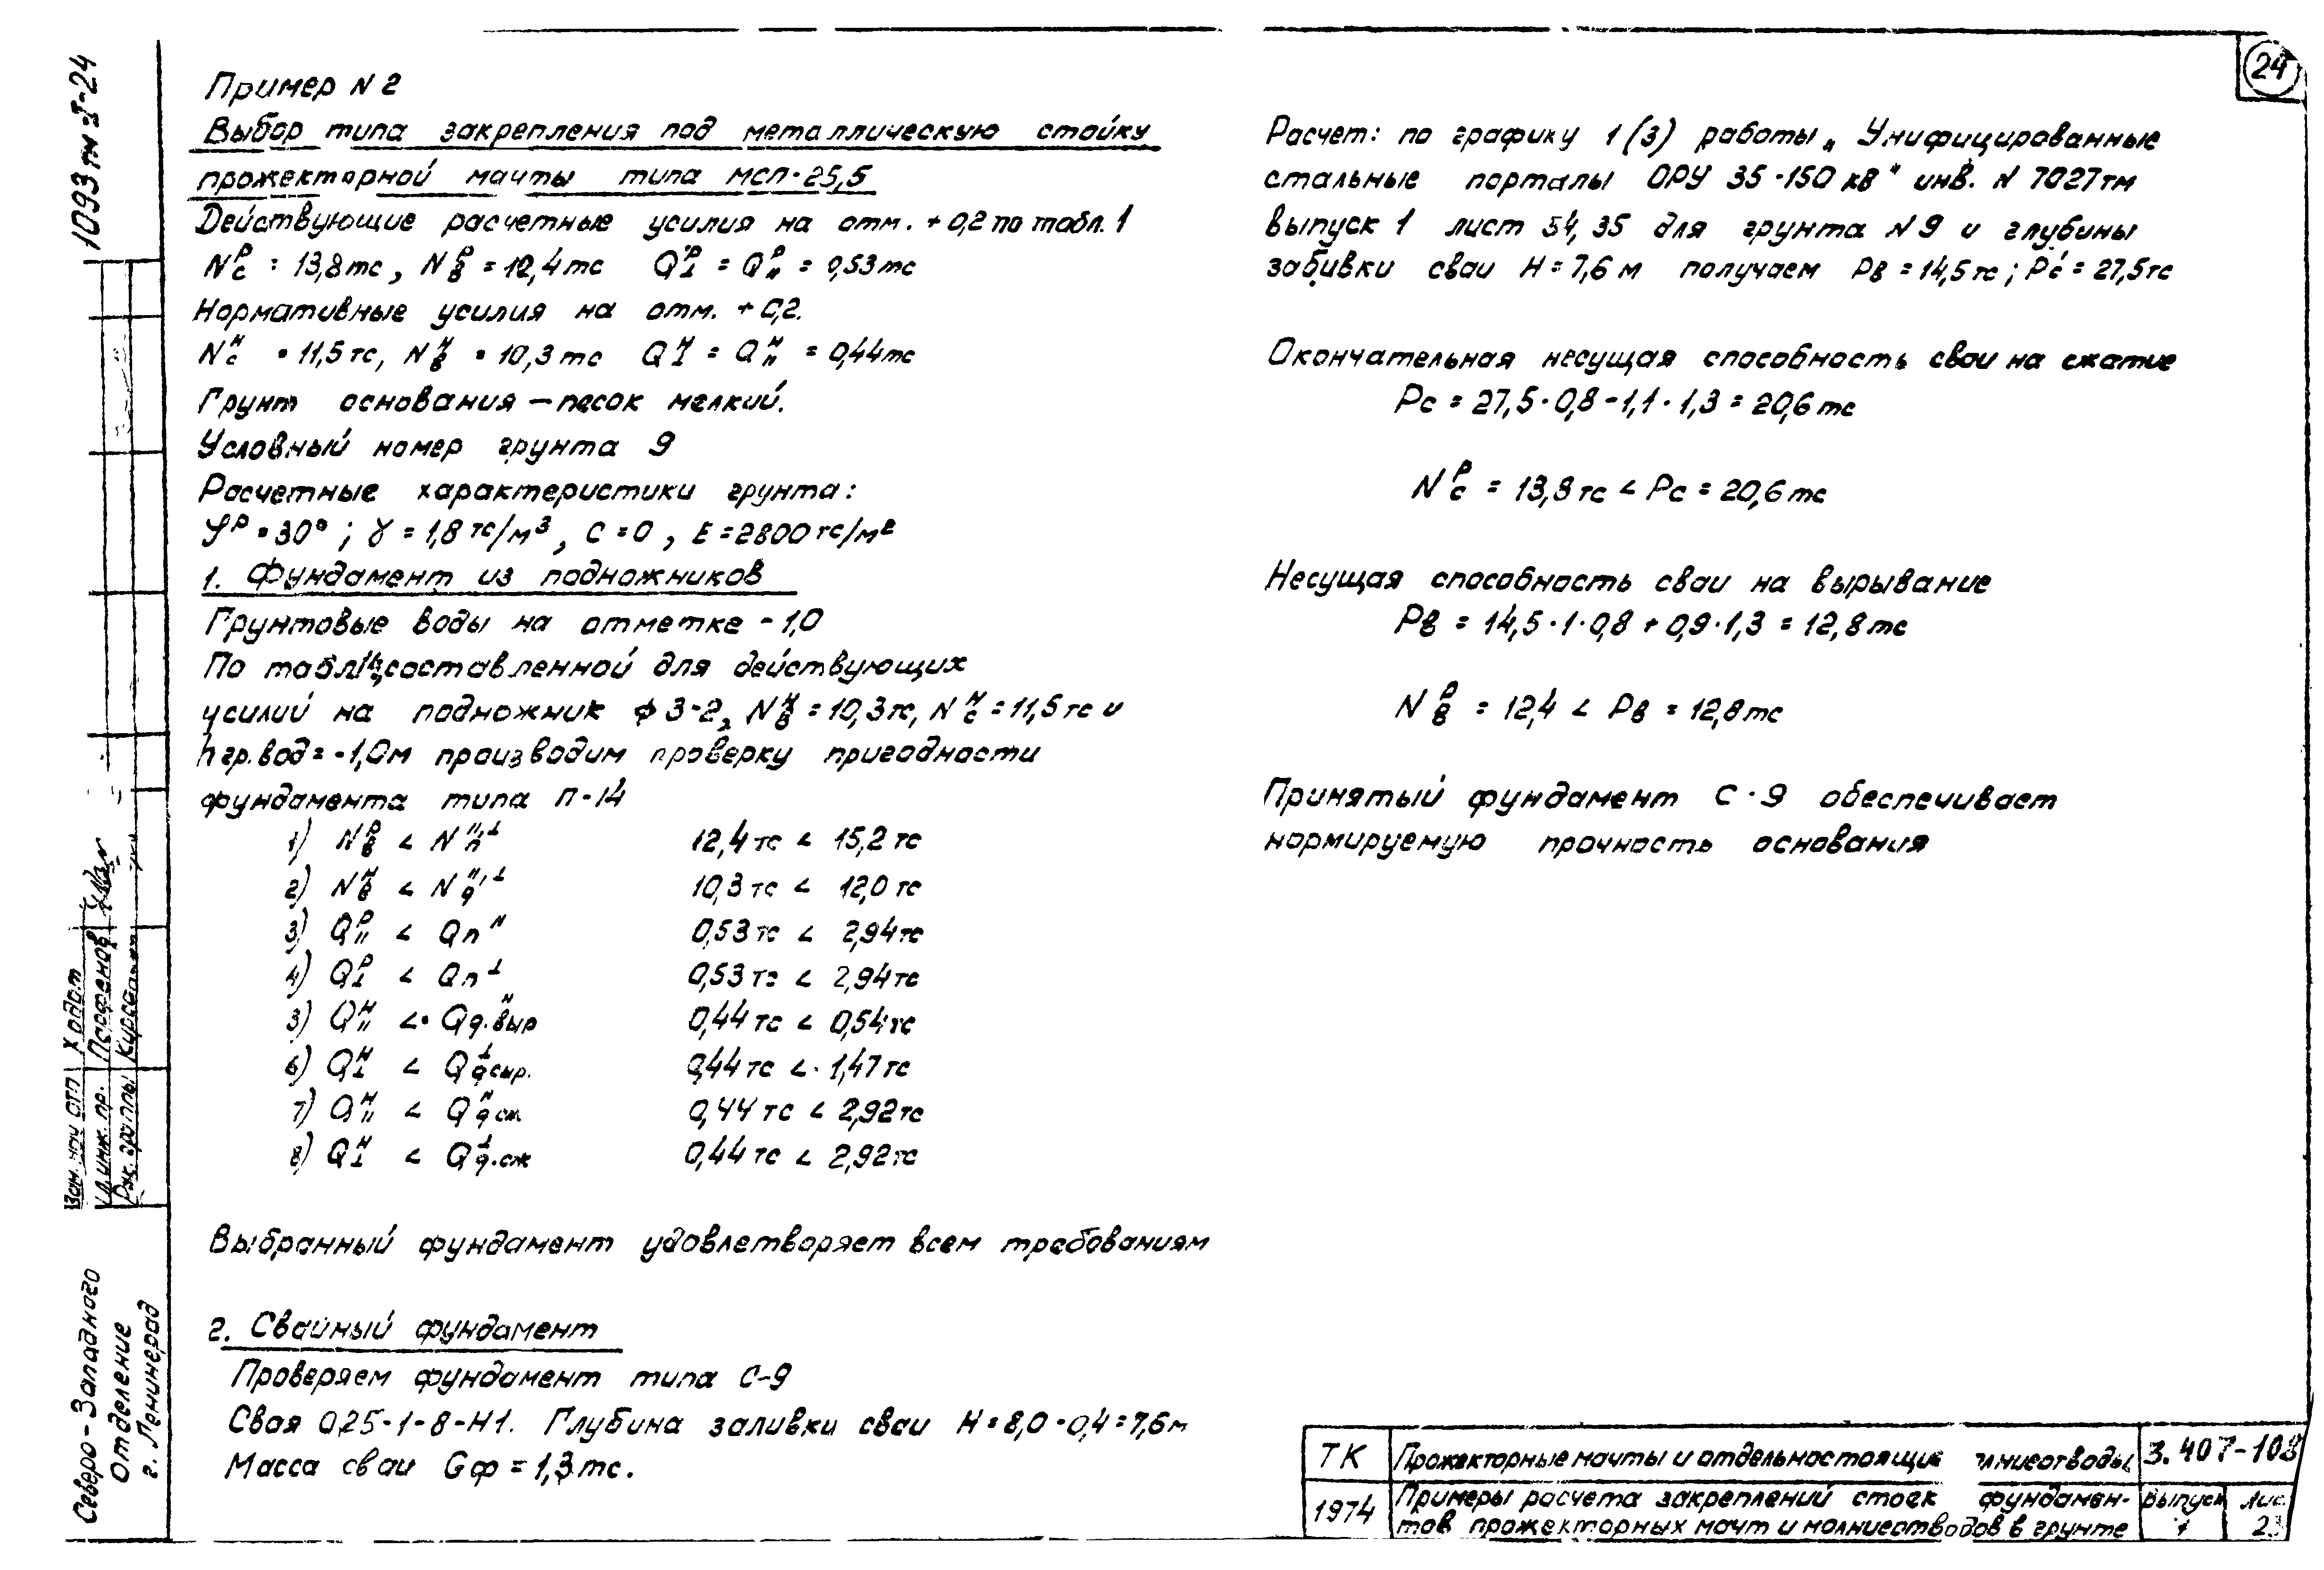 Пример N 2
Выбор типа закрепления под металлическую стойку
прожекторной мачты типа МСП-25,5
Действующие расчетные усилия на отм. +0,2 по табл. 1
Nᴾc = 13,8 тс, Nᴾв = 12,4 тс Qᴾ⊥ = Qᴾ॥ = 0,53 тс
Нормативные усилия на отм. +0,2.
Nᴴc = 11,5 тс, Nᴴв = 10,3 тс Qᴴ⊥ = Qᴴ॥ = 0,44 тс
Грунт основания – песок мелкий.
Условный номер грунта 9
Расчетные характеристики грунта:
φᴾ = 30°; γ = 1,8 тс/м³, C = 0, E = 2800 тс/м²
1. Фундамент из подножников
Грунтовые воды на отметке -1,0
По табл. 14, составленной для действующих
усилий на подножник ф 3-2, Nᴴв = 10,3 тс, Nᴴc = 11,5 тс и
h гр.вод = -1,0 м производим проверку пригодности
фундамента типа П-14
1) Nᴾв < N॥,⊥п 12,4 тс < 15,2 тс
2) Nᴴв < N॥,⊥д 10,3 тс < 12,0 тс
3) Qᴾ॥ < Qп॥ 0,53 тс < 2,94 тс
4) Qᴾ⊥ < Qп⊥ 0,53 тс < 2,94 тс
5) Qᴴ॥ < Q॥д.выр 0,44 тс < 0,54 тс
6) Qᴴ⊥ < Q⊥д выр. 0,44 тс < 1,47 тс
7) Qᴴ॥ < Q॥д сж. 0,44 тс < 2,92 тс
8) Qᴴ⊥ < Q⊥д.сж 0,44 тс < 2,92 тс
Выбранный фундамент удовлетворяет всем требованиям
2. Свайный фундамент
Проверяем фундамент типа С-9
Свая 0,25-1-8-Н1. Глубина заливки сваи H = 8,0 - 0,4 = 7,6 м
Масса сваи Gф = 1,3 тс.
Расчет: по графику 1 (3) работы „Унифицированные
стальные порталы ОРУ 35-150 кв" инв. N 7027тм
выпуск 1 лист 34, 35 для грунта N 9 и глубины
забивки сваи H = 7,6 м получаем Pв = 14,5 тс; P'c = 27,5 тс
Окончательная несущая способность сваи на сжатие
Pc = 27,5 · 0,8 - 1,1 · 1,3 = 20,6 тс
Nᴾc = 13,8 тс < Pc = 20,6 тс
Несущая способность сваи на вырывание
Pв = 14,5 · 1 · 0,8 + 0,9 · 1,3 = 12,8 тс
Nᴾв = 12,4 < Pв = 12,8 тс
Принятый фундамент С-9 обеспечивает
нормируемую прочность основания
24
1093тм-I-24
Зам. нач ОТП Ходот
Гл. инж. пр. Парфенов
Рук. группы
Северо-Западного
Отделение
г. Ленинград
ТК Прожекторные мачты и отдельностоящие 3.407-108
1974 Примеры расчета закреплений стоек фундамен-
тов прожекторных мачт и молниеотводов в грунте
Выпуск 1
Лис 23